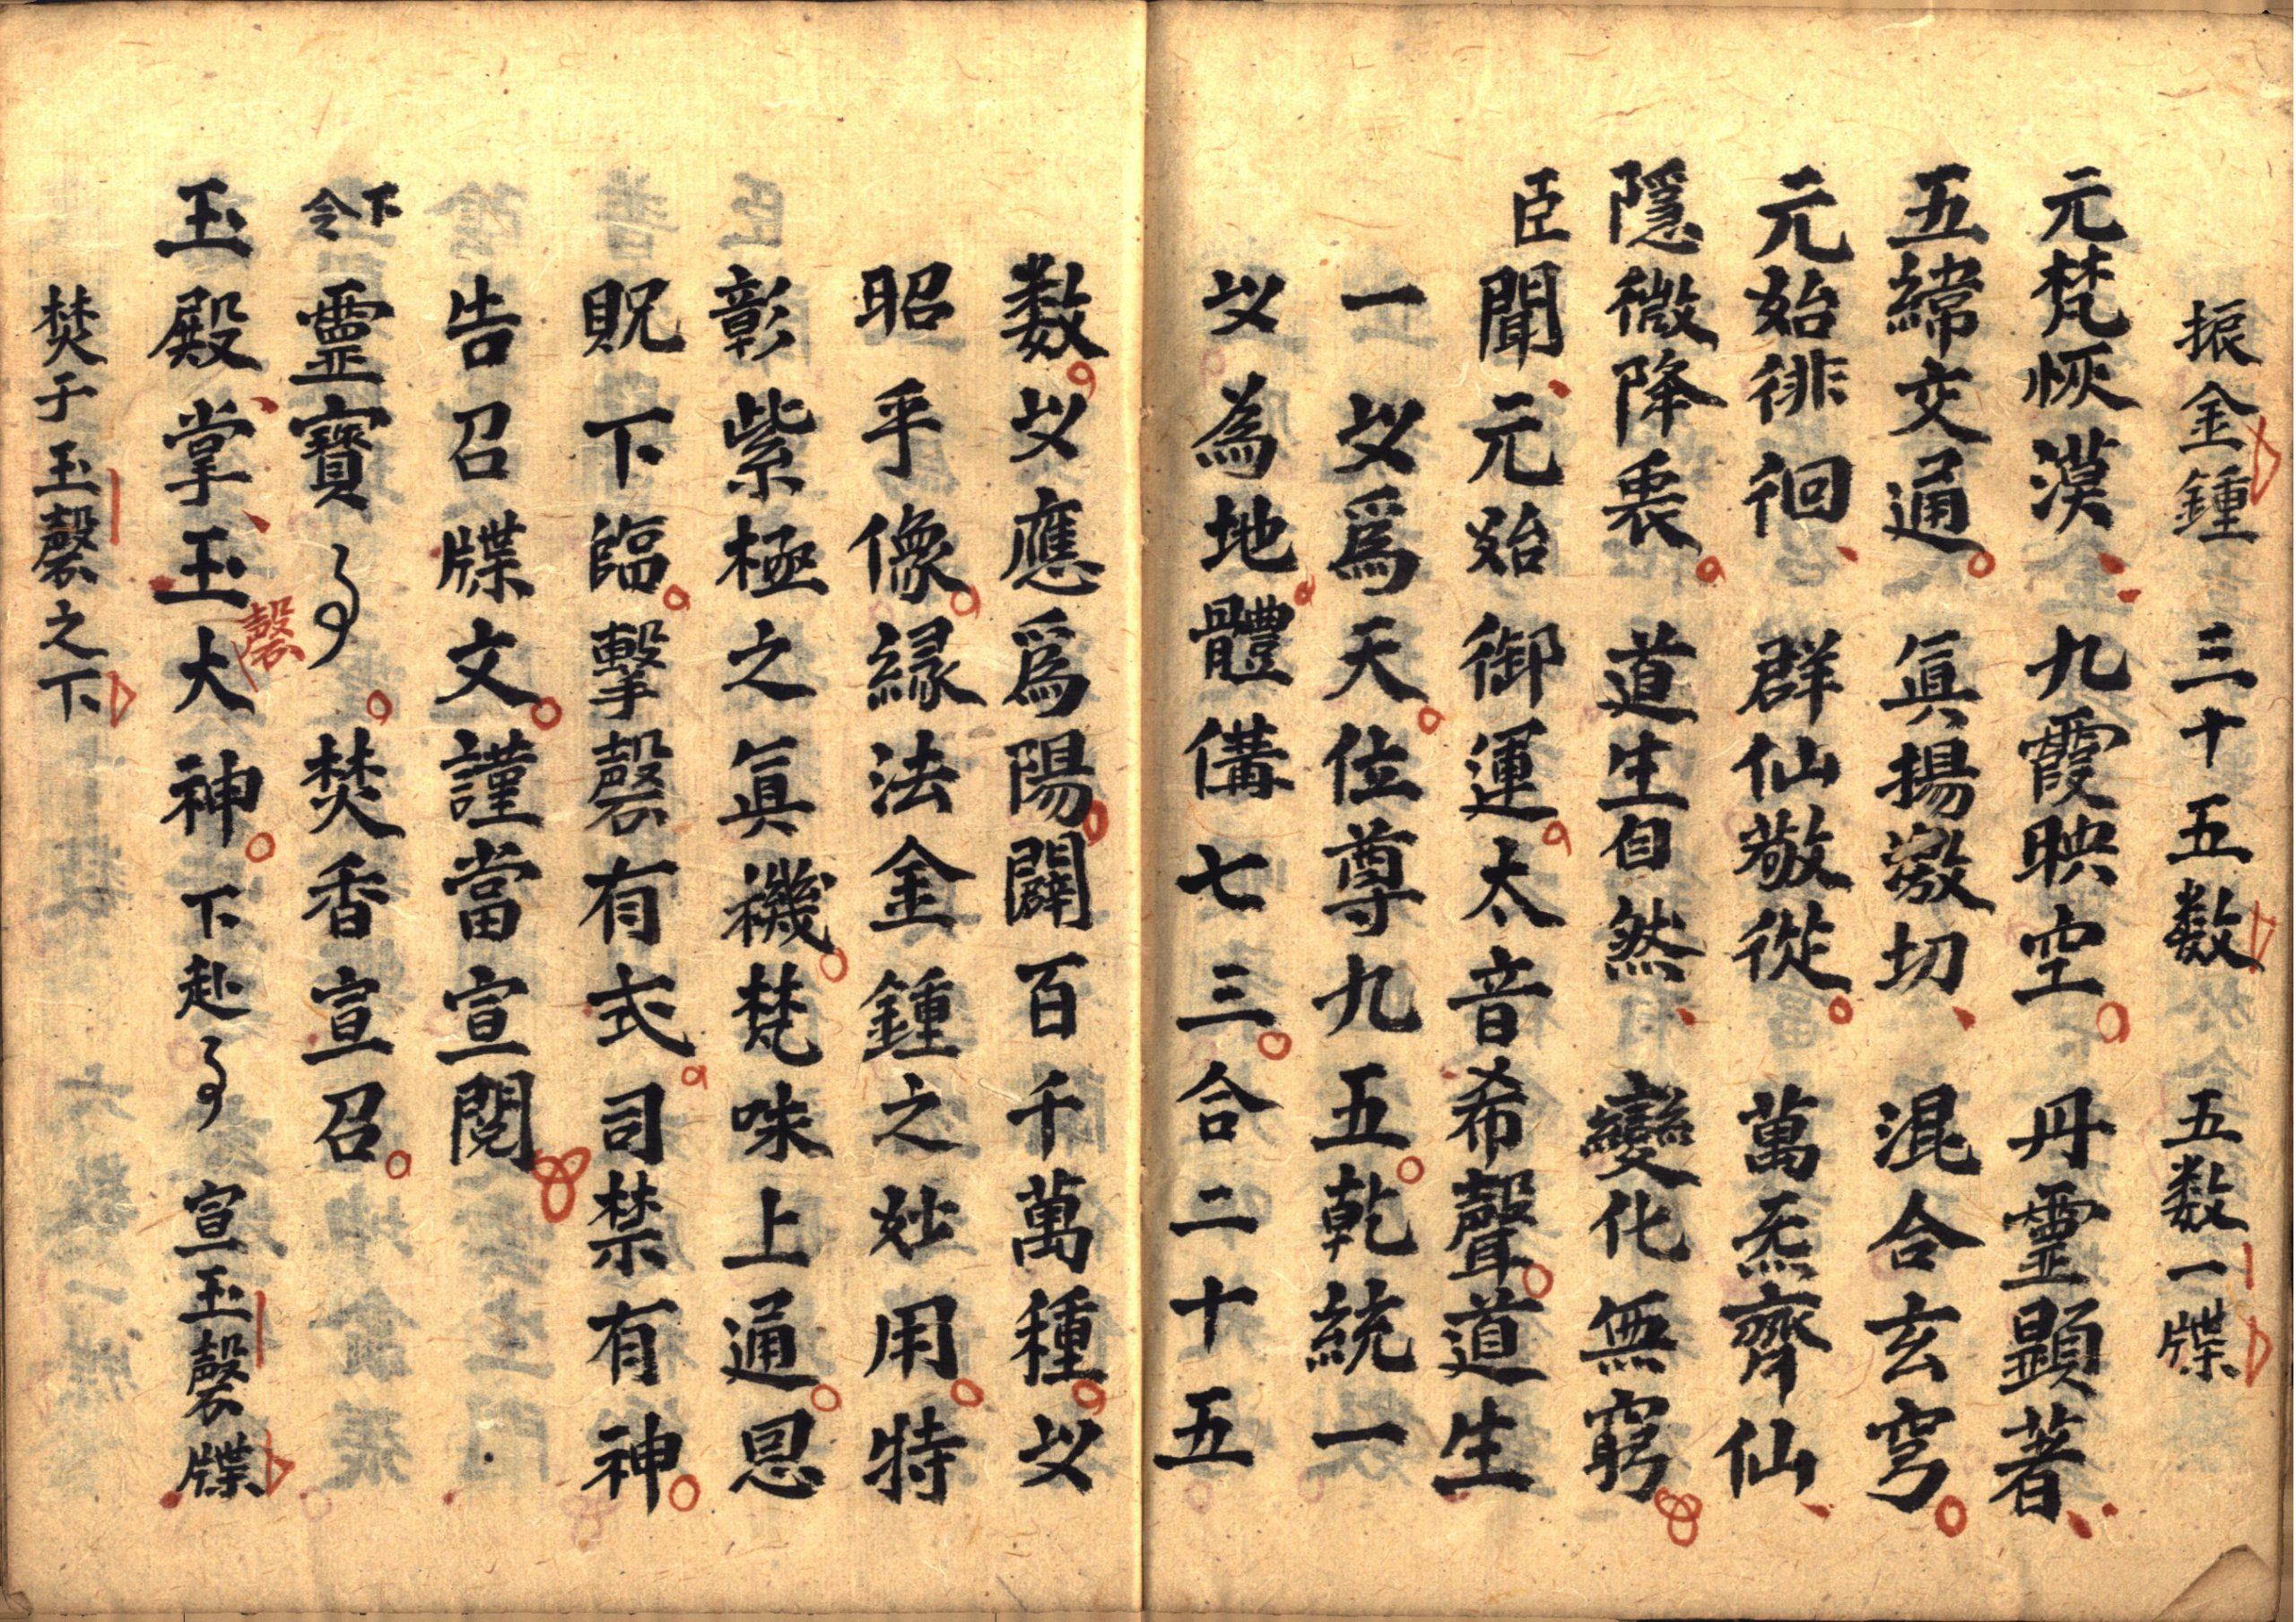 振金鍾 三十五数 五数一牒
元梵恢漠 九霞映空 丹靈顕著
五緯交通 眞揚激切 混合玄穹
元始徘徊 群仙敬從 萬炁齊仙
隱微降衷 道生自然 變化無窮
臣聞元始御運太音希聲道生
一以爲天位尊九五乾統一
以為地體備七三合二十五
数以應爲陽闢百千萬種以
昭乎像縁法金鍾之妙用特
彰紫極之眞機梵味上通恩
貺下臨擊磬有式司禁有神
告召牒文謹當宣閱
下令 靈寶 焚香宣召
玉殿掌玉磬大神 下赴 宣玉磬牒
焚于玉磬之下